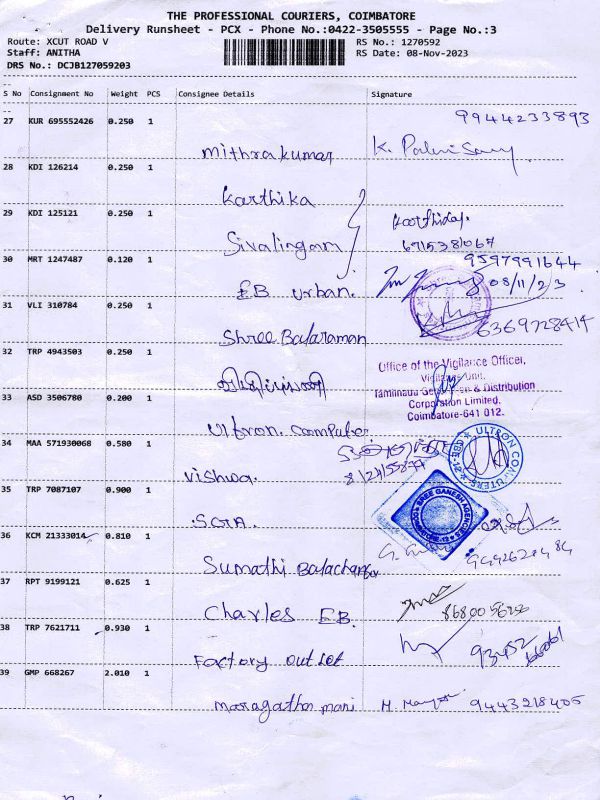 THE PROFESSIONAL COURIERS, COIMBATORE
Delivery Runsheet - PCX - Phone No.:0422-3505555 - Page No.:3
Route: XCUT ROAD V
RS No.: 1270592
Staff: ANITHA
RS Date: 08-Nov-2023
DRS No.: DCJB127059203
S No Consignment No Weight PCS Consignee Details Signature
27 KUR 695552426 0.250 1
9944233893
Mithrakumar
28 KDI 126214 0.250 1
Karthika
29 KDI 125121 0.250 1
Sivalingam
30 MRT 1247487 0.120 1
9597991644
EB urban.
08/11/23
31 VLI 310784 0.250 1
6369728414
Shree Balaraman
32 TRP 4943503 0.250 1
Office of the Vigilance Officer,
Vigilance Unit,
Tamilnadu & Distribution
Corporation Limited,
Coimbatore-641 012.
33 ASD 3506780 0.200 1
Ultron. computer
ULTRON COMPUTERS
34 MAA 571930068 0.580 1
Vishwa.
35 TRP 7087107 0.900 1
SREE GANESH AGENCIES
SGA.
36 KCM 21333014 0.810 1
Sumathi Balachander
37 RPT 9199121 0.625 1
Charles EB.
38 TRP 7621711 0.930 1
Factory outlet
93452
39 GMP 668267 2.010 1
Maragatha mani
9443218405